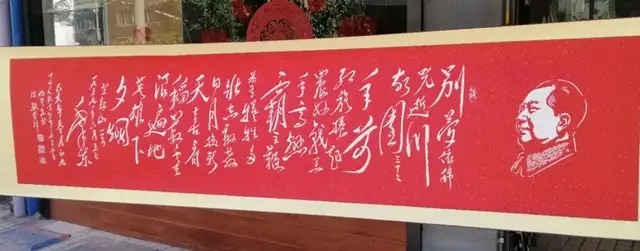 别梦依稀
咒逝川
故園三十二
年前
红旗捲起
農奴戟黑
手高懸
霸主鞭
為有犧牲多
壯志敢教
日月换新
天喜看
稻菽千重
浪遍地
英雄下
夕烟
毛泽东